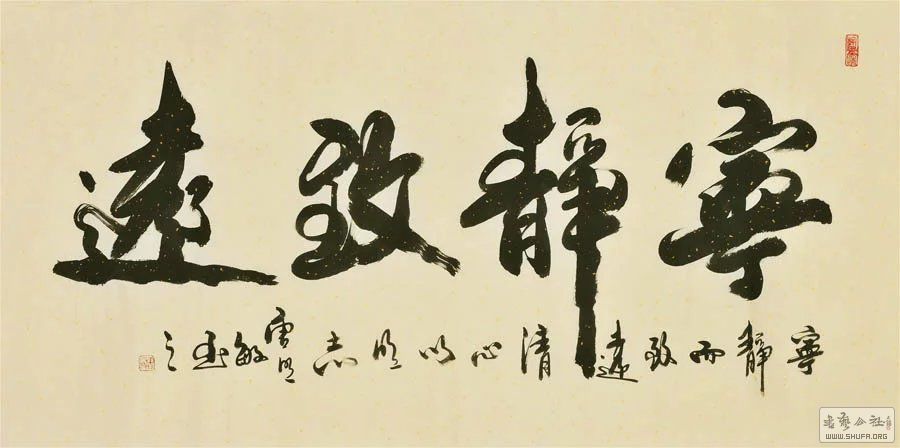 寧靜致遠
寧靜而致遠清心以明志明敏書之
書藝公社
WWW.SHUFA.ORG